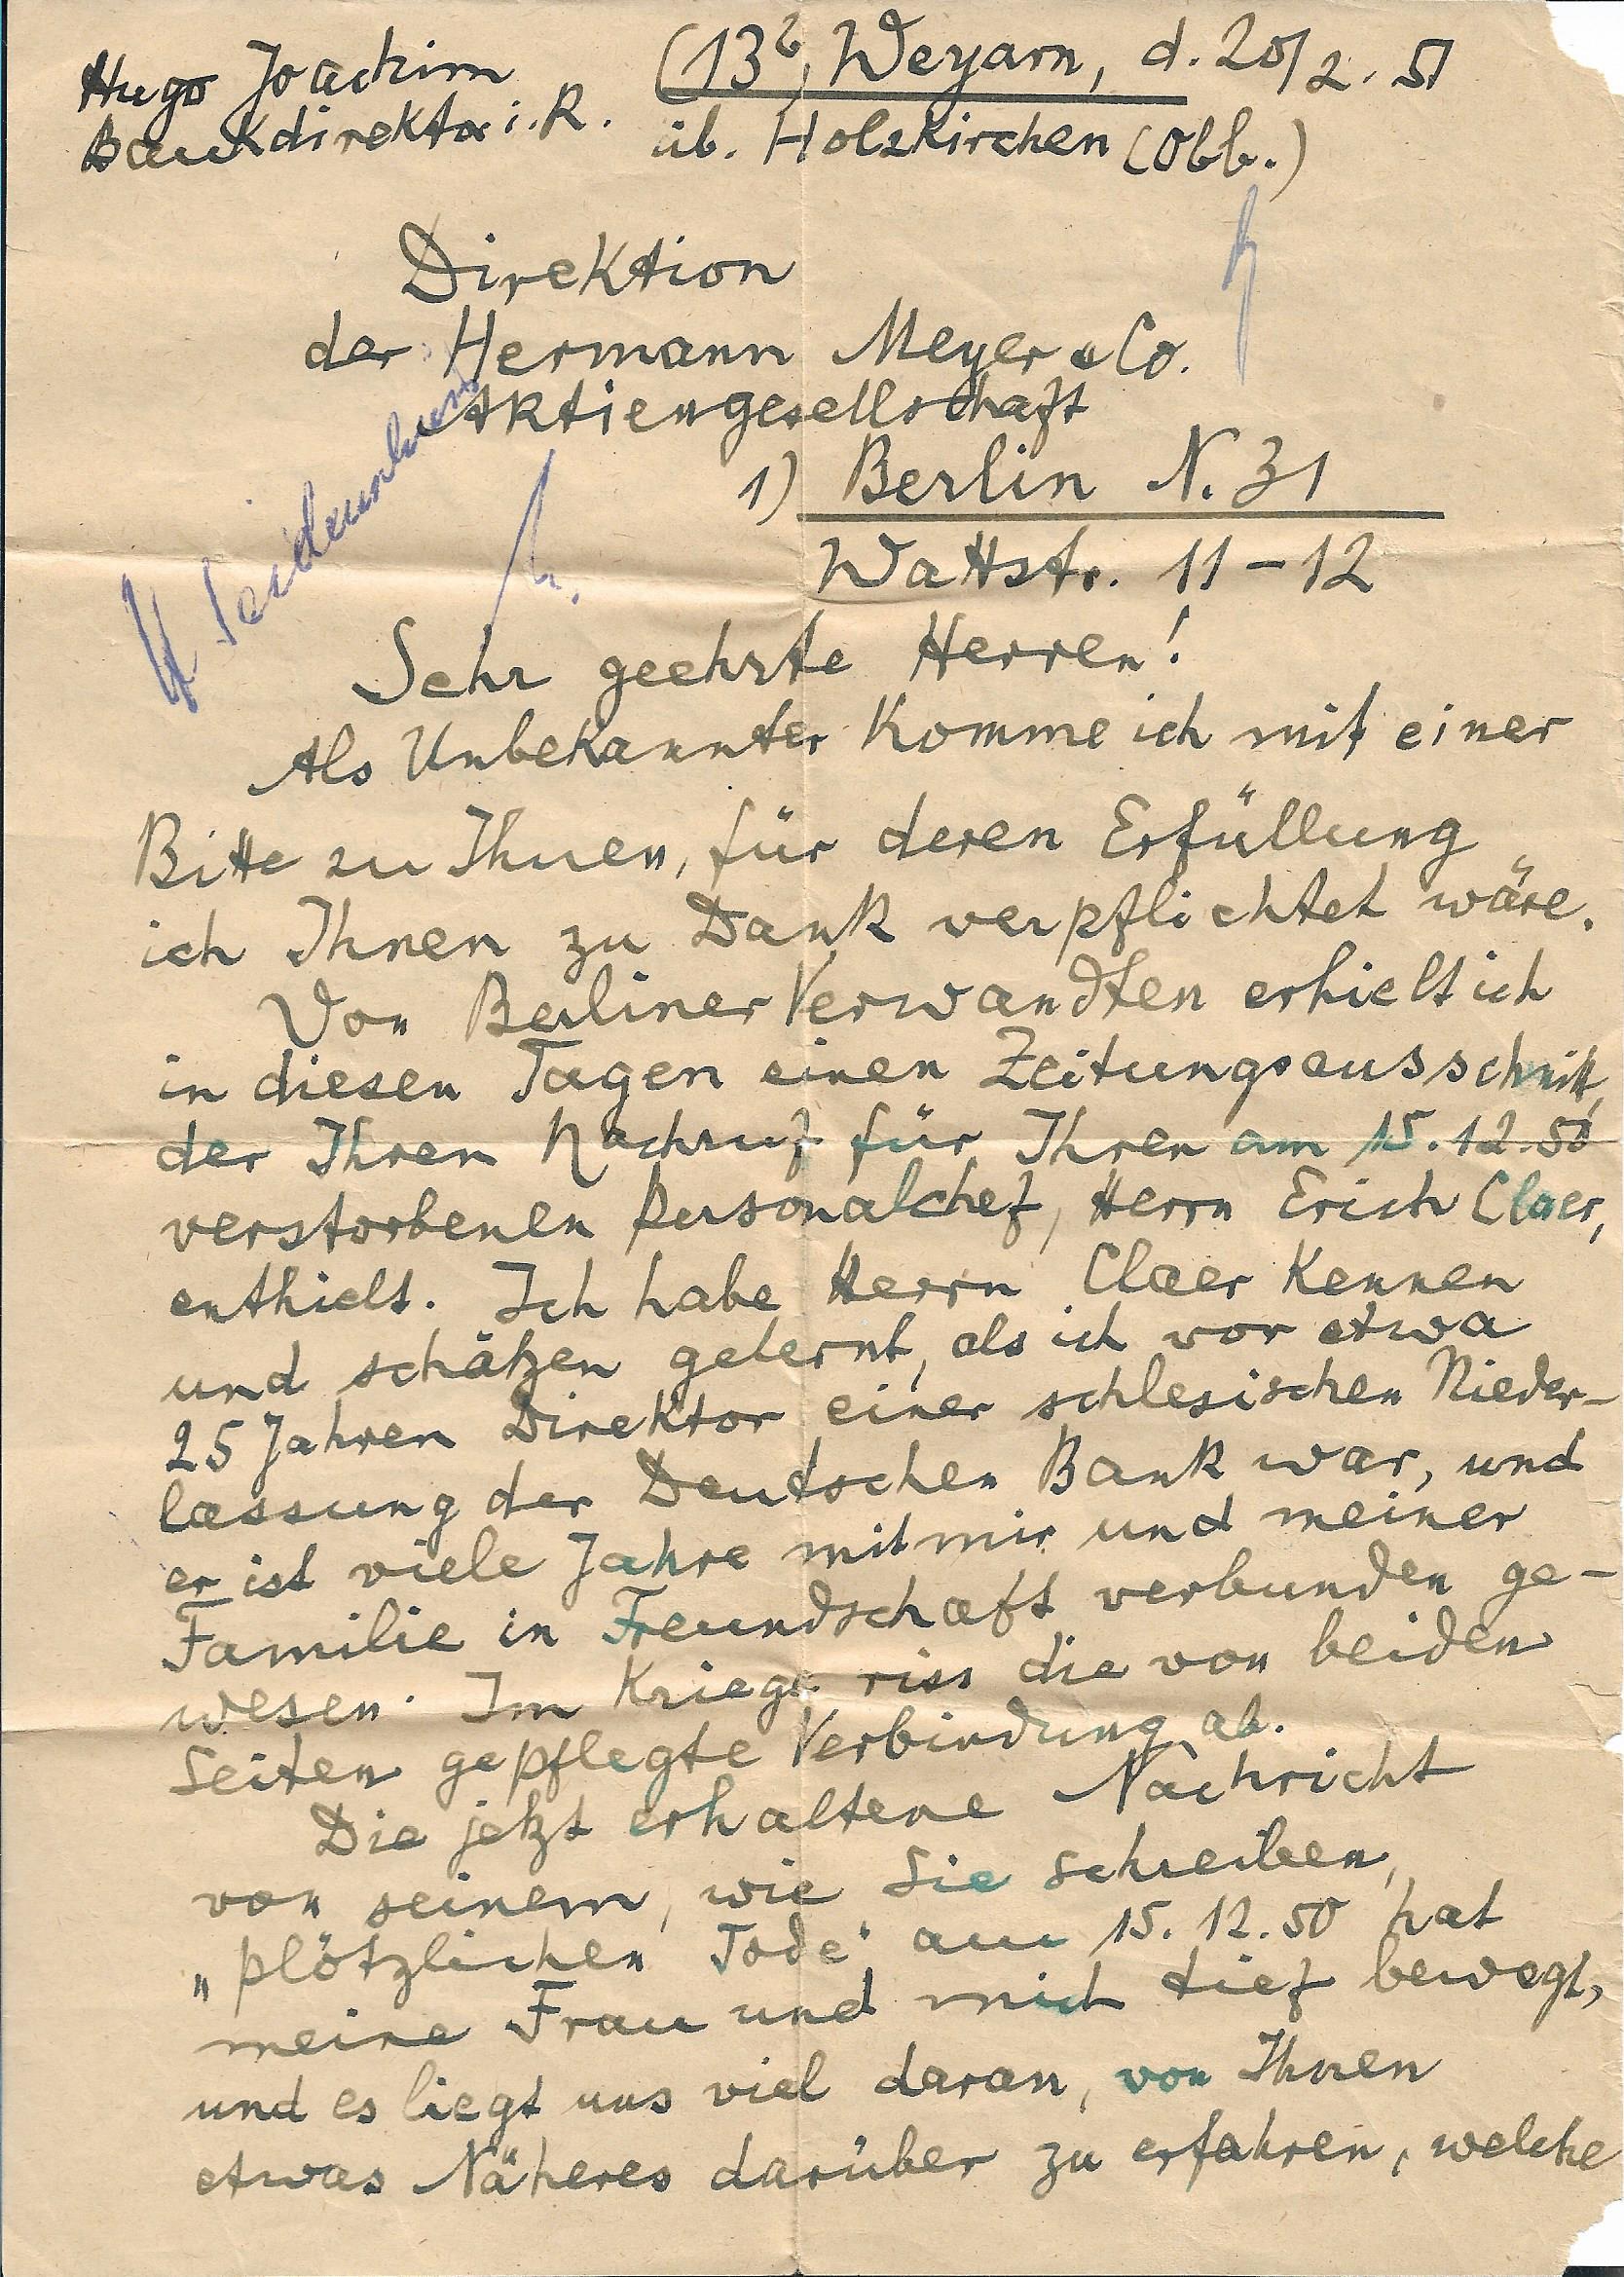 Hugo Joachim
Bankdirektor i. R.
(13b) Weyarn, d. 20/2. 51
üb. Holzkirchen (Obb.)
Direktion
der Hermann Meyer & Co.
Aktiengesellschaft
1) Berlin N. 31
Wattstr. 11-12
Sehr geehrte Herren!
Als Unbekannter komme ich mit einer
Bitte zu Ihnen, für deren Erfüllung
ich Ihnen zu Dank verpflichtet wäre.
Von Berliner Verwandten erhielt ich
in diesen Tagen einen Zeitungsausschnitt,
der Ihren Nachruf für Ihren am 15.12.50
verstorbenen Personalchef, Herrn Erich Claer,
enthielt. Ich habe Herrn Claer kennen
und schätzen gelernt, als ich vor etwa
25 Jahren Direktor einer schlesischen Nieder-
lassung der Deutschen Bank war, und
er ist viele Jahre mit mir und meiner
Familie in Freundschaft verbunden ge-
wesen. Im Kriege riss die von beiden
Seiten gepflegte Verbindung ab.
Die jetzt erhaltene Nachricht
von seinem, wie Sie schreiben,
„plötzlichen Tode" am 15.12.50 hat
meine Frau und mich tief bewegt,
und es liegt uns viel daran, von Ihnen
etwas Näheres darüber zu erfahren, welche